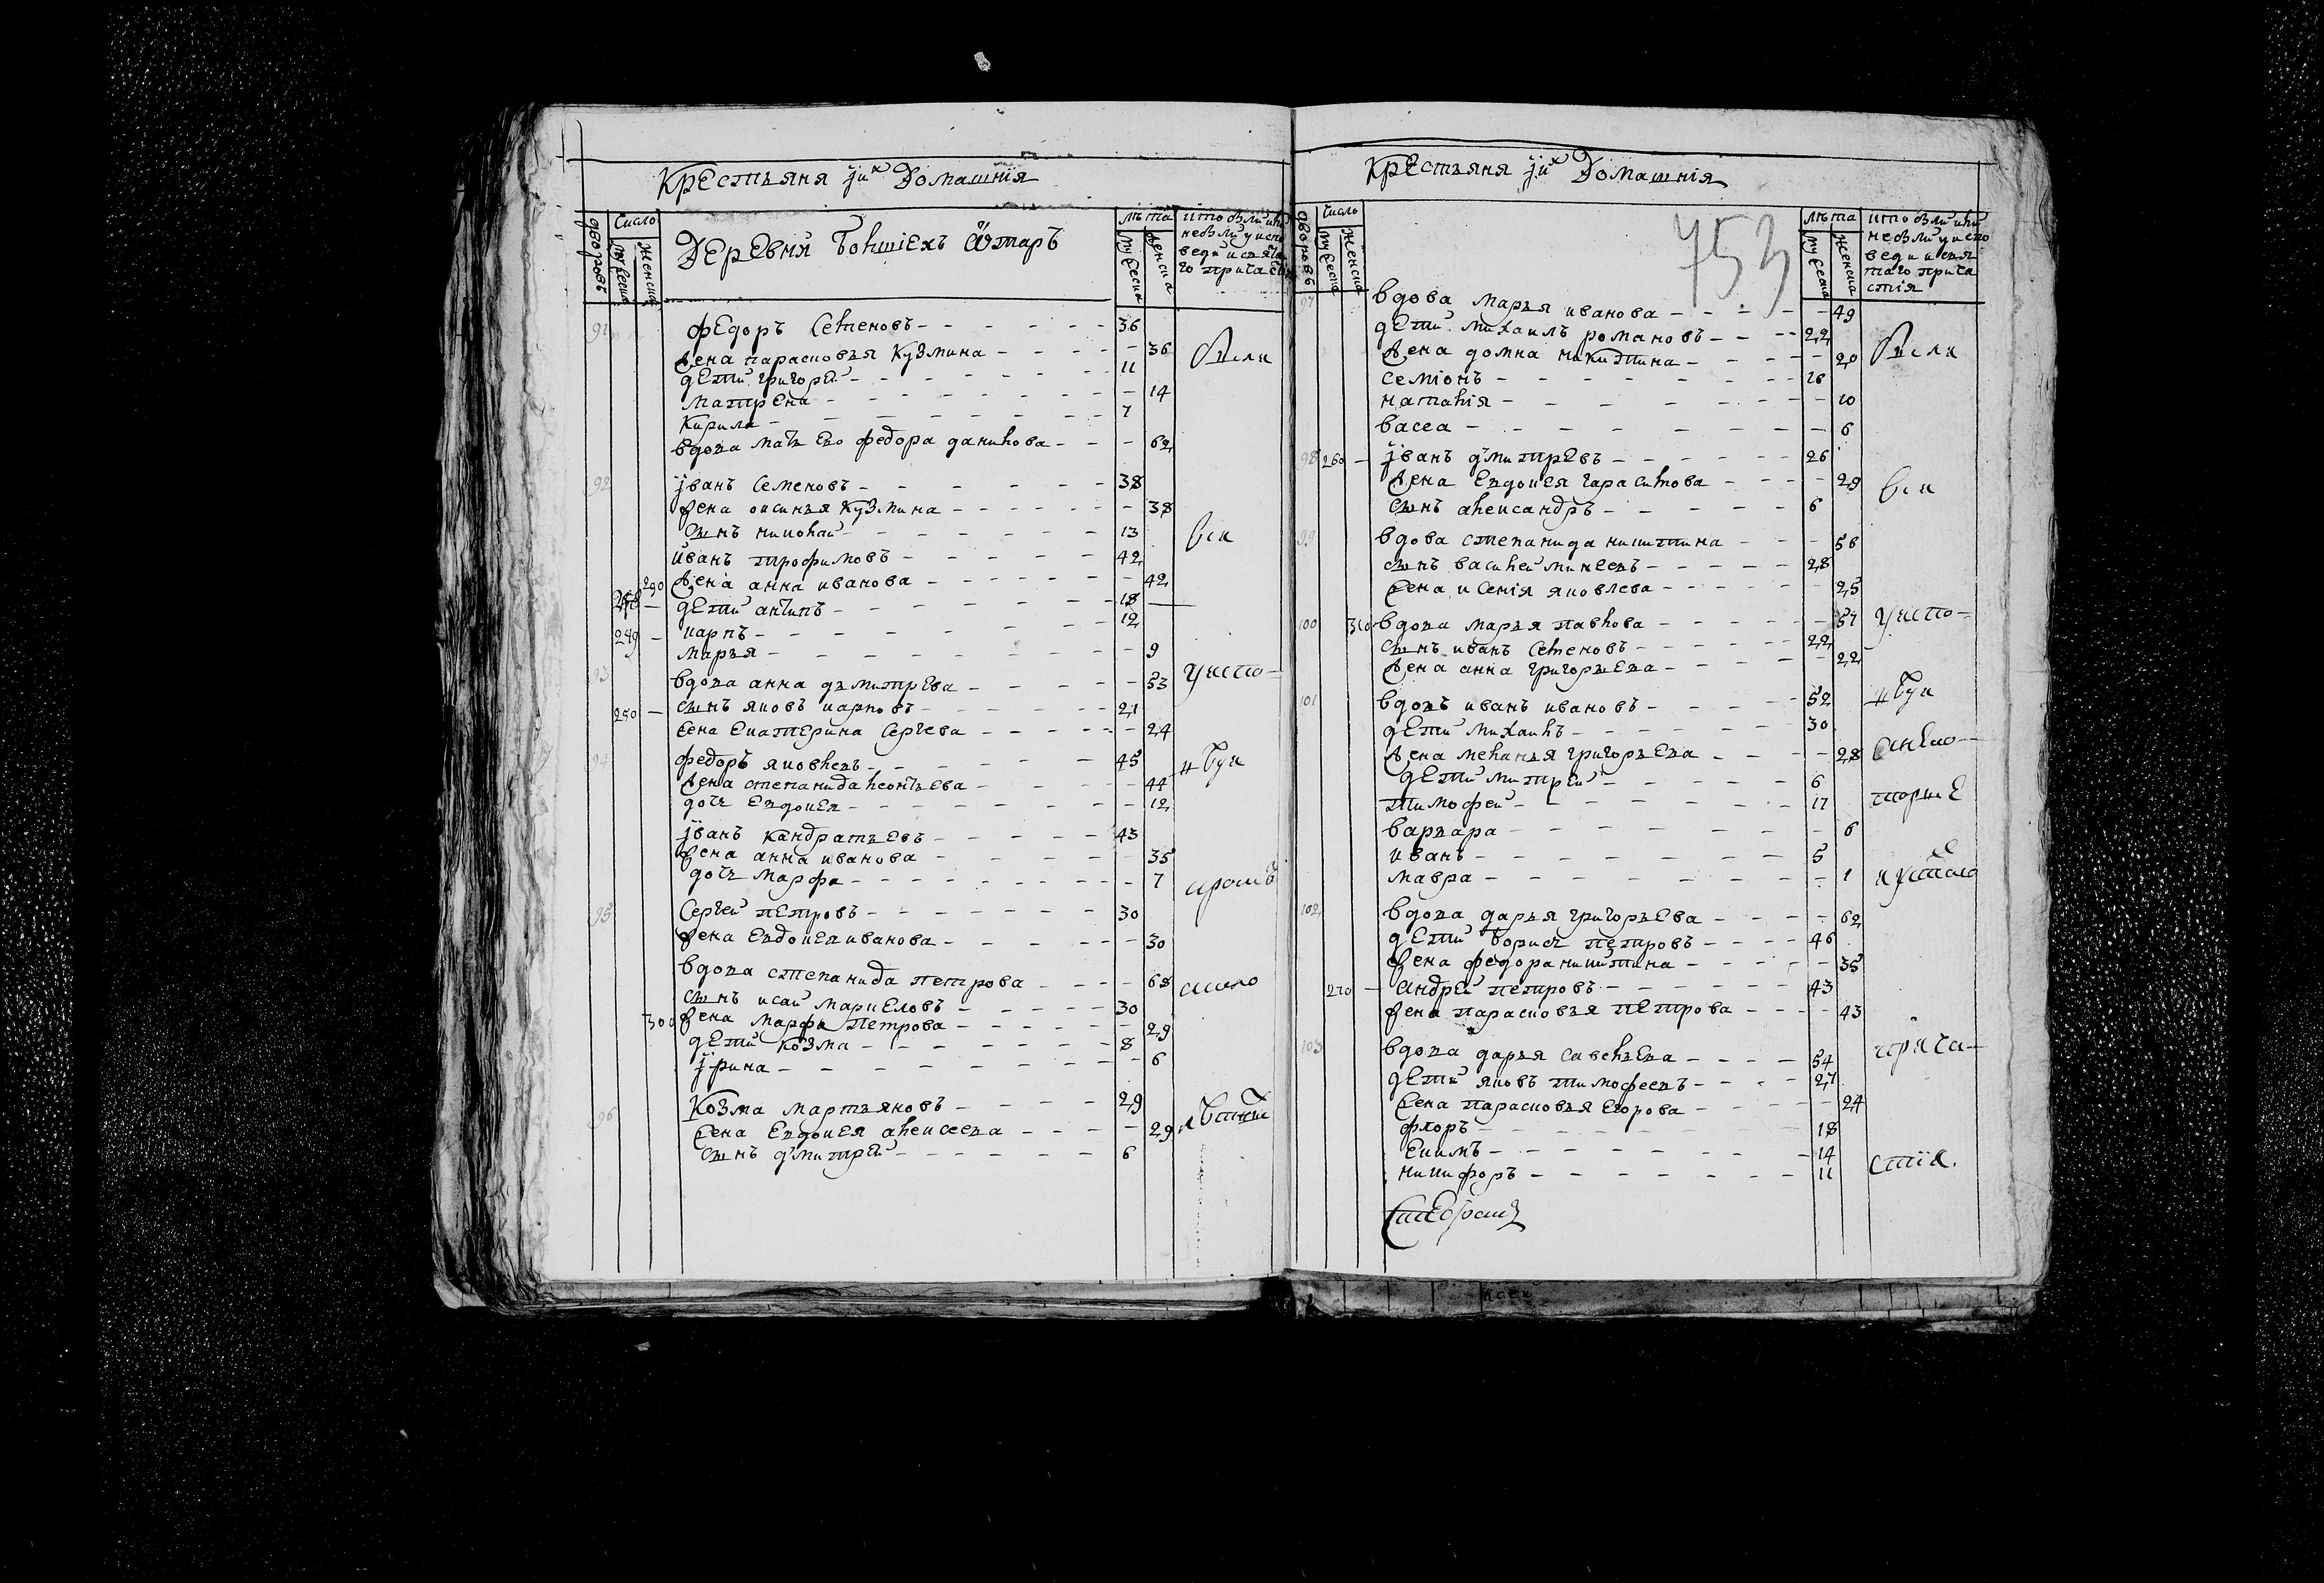 Крестьяня их Домашнія
дворовъ
Число
мужеска
женска
Деревня Болшiехъ Атаръ
лѣта
мужеска
женска
кто были или
не были у испо
веди и свята
го причастія
91 Федоръ Семеновъ - 36
жена парасковья Кузмина - 36 были
дети григорей - 11
матрена - 14
Кирила - 7
вдова мать ево федора данилова - 62
92 Iванъ Семеновъ - 38
жена оксинья Кузмина - 38
сынъ николай - 13 вси
иванъ трофимовъ - 42
290 жена анна иванова - 42
дети антипъ - 18
249 - карпъ - 12
марья - 9
93 вдова анна дъмитрева - 53 у испо-
250 - сынъ яковъ карповъ - 21
жена Екатерина Сергева - 24
94 федоръ яковлевъ - 45
жена степанида леонтьева - 44
дочь Евдокея - 12
Iванъ Кандратьевъ - 43
жена анна иванова - 35
дочь Марфа - 7 кромѣ
95 Сергей петровъ - 30
жена Евдокея иванова - 30
вдова степанида петрова - 68
сынъ исай - 30
300 жена марфа Петрова - 29
дети Козма - 8
Iрина - 6
96 Козма мартьяновъ - 29
жена Евдокея алексеева - 29
сынъ дъмитрей - 6
Крестьяня их Домашнія
753
дворовъ
Число
мужеска
женска
лѣта
мужеска
женска
кто были или
не были у испо
веди и свя
таго прича
стія
97 вдова Марья иванова - 49
дети Михаилъ романовъ - 22
жена домна никитина - 20 были
семіонъ - 16
наталія - 10
васса - 6
98 260 - Iванъ дъмитревъ - 26
жена Евдокея гарасимова - 29 вси
сынъ александръ - 6
99 вдова степанида никитина - 56
сынъ василей минеевъ - 28
жена ксенія яковлева - 25
100 310 вдова марья павлова - 54 у испо-
сынъ иванъ Семеновъ - 22
жена анна григорьева - 22
101 вдовъ иванъ ивановъ - 52
дети Михаилъ - 30
жена меланья григорьева - 28
дети митрей - 6
тимофей - 17
варвара - 6
иванъ - 5
мавра - 1
102 вдова дарья григорьева - 62
дети Борисъ петровъ - 46
жена федора никитина - 35
270 - Андрей петровъ - 43
жена парасковья петрова - 43
103 вдова дарья савельева - 54 прича-
дети яковъ тимофеевъ - 27
жена парасковья Егорова - 24
флоръ - 18
Екимъ - 14
никифоръ - 11 стія.